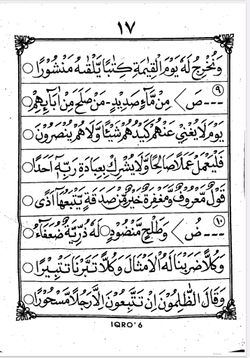 ١٧
وَنُخْرِجُ لَهُ يَوْمَ الْقِيٰمَةِ كِتٰبًا يَّلْقٰىهُ مَنْشُوْرًا ○
٩ --- ص > مِنْ مَّاۤءٍ صَدِيْدٍ - مَنْ صَلَحَ مِنْ اٰبَاۤئِهِمْ ○
يَوْمَ لَا يُغْنِيْ عَنْهُمْ كَيْدُهُمْ شَيْئًا وَّلَا هُمْ يُنْصَرُوْنَ ○
فَلْيَعْمَلْ عَمَلًا صَالِحًا وَّلَا يُشْرِكْ بِعِبَادَةِ رَبِّهٖٓ اَحَدًا ○
قَوْلٌ مَّعْرُوْفٌ وَّمَغْفِرَةٌ خَيْرٌ مِّنْ صَدَقَةٍ يَّتْبَعُهَآ اَذًى ○
١٠ --- ض > وَطَلْحٍ مَّنْضُوْدٍ ○ لَهٗ ذُرِّيَّةٌ ضُعَفَاۤءُ ○
وَكُلًّا ضَرَبْنَا لَهُ الْاَمْثَالَ وَكُلًّا تَبَّرْنَا تَتْبِيْرًا ○
وَقَالَ الظّٰلِمُوْنَ اِنْ تَتَّبِعُوْنَ اِلَّا رَجُلًا مَّسْحُوْرًا ○
IQRO' 6